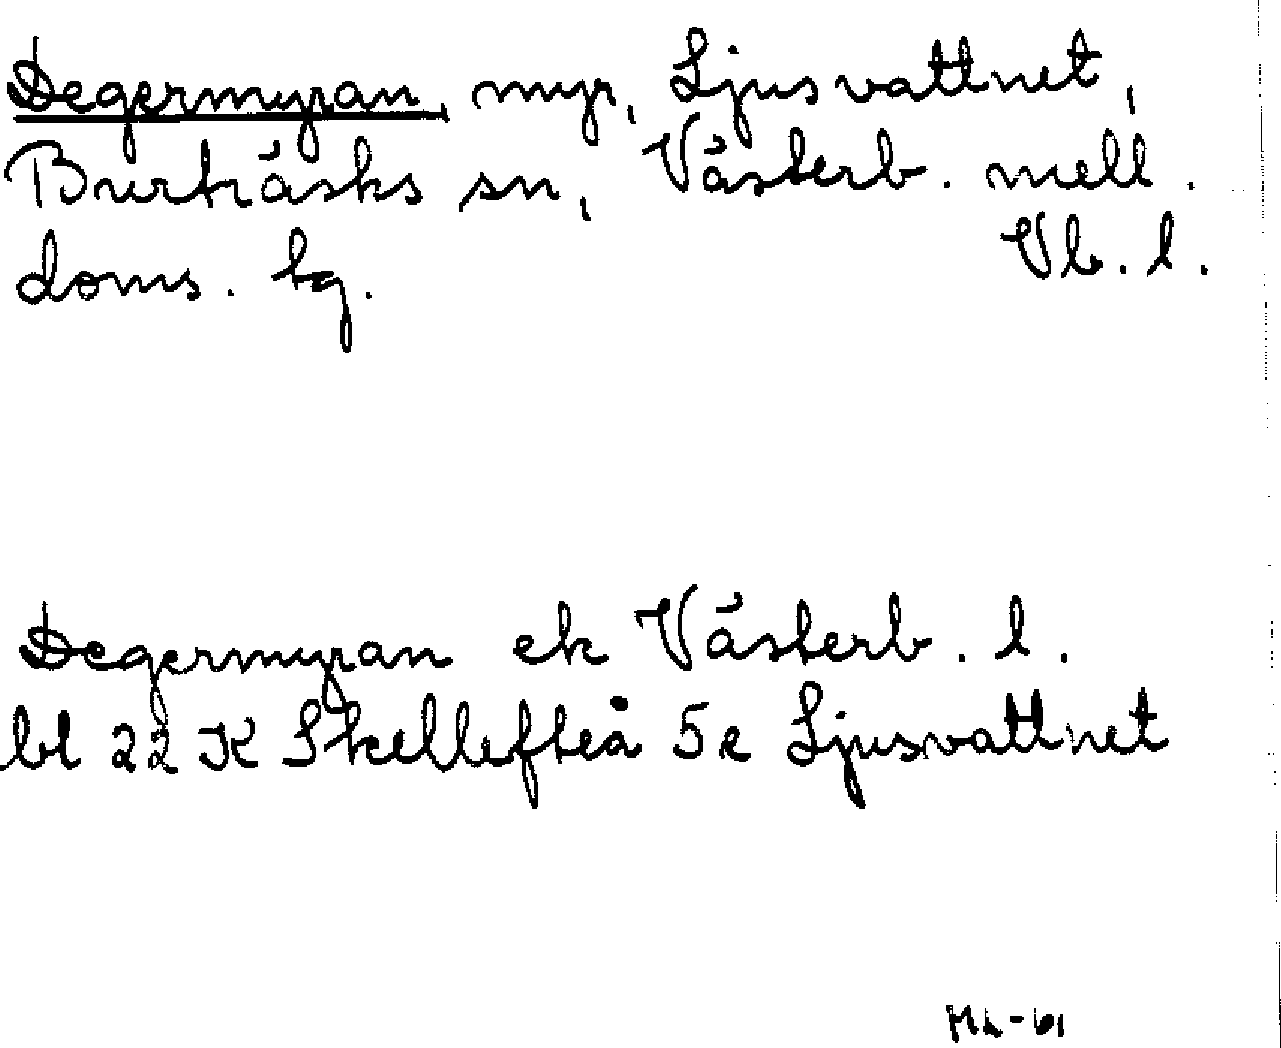 Degermyran, myr, Ljusvattnet,
Burträsks sn, Västerb. mell.
doms. tg. Vb. l.
Degermyran ek Västerb. l.
bl 22 K Skellefteå 5e Ljusvattnet